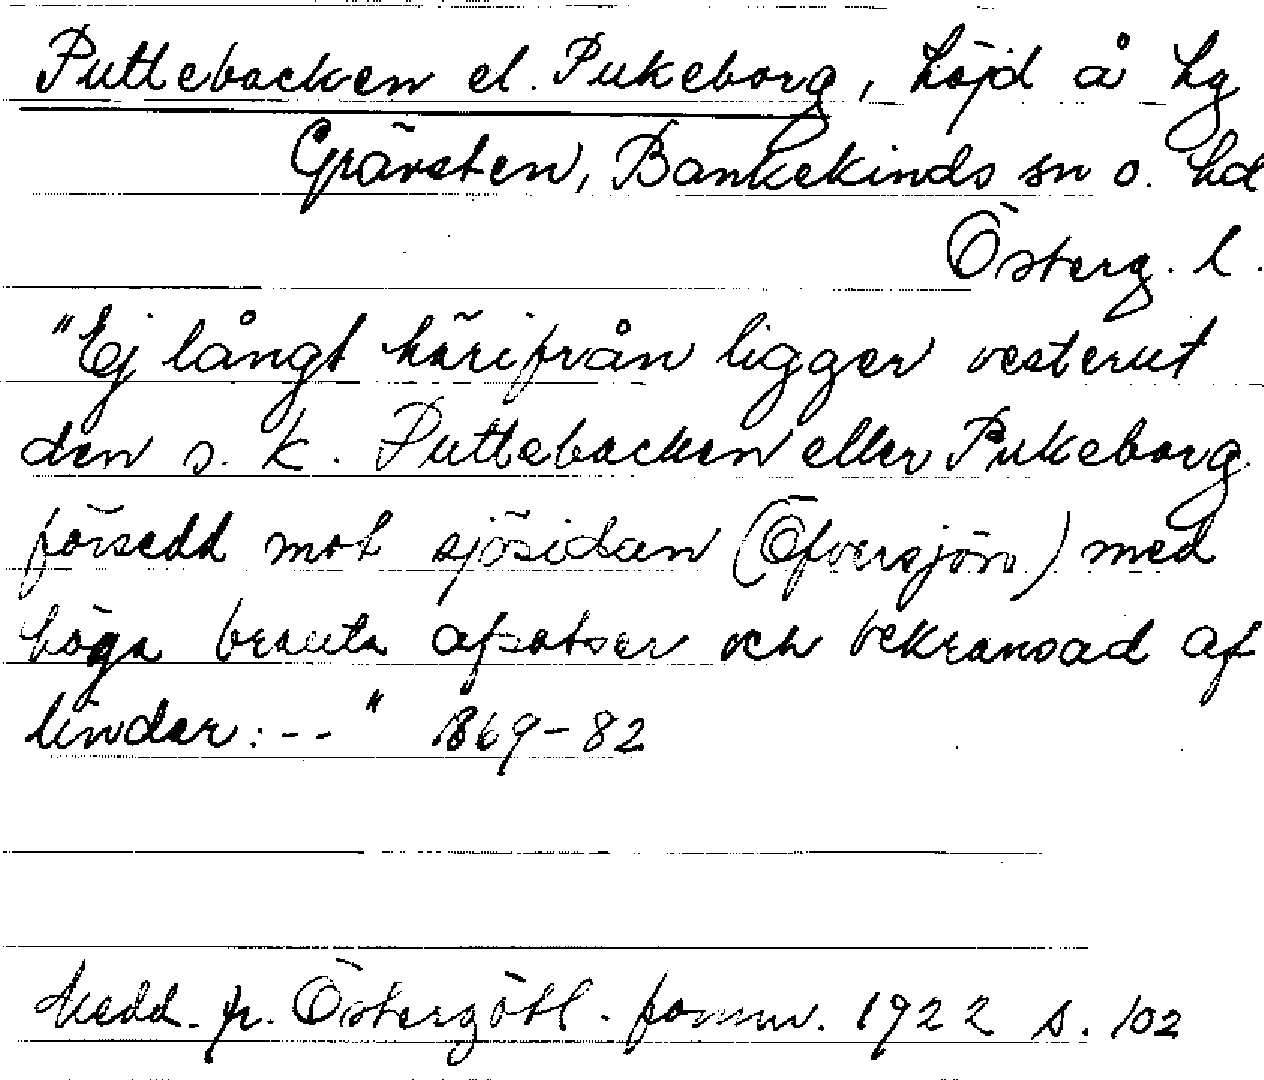 Puttebacken el. Pukeborg, höjd å hg
Grävsten, Bankekinds sn o. hd
Österg. l.
"Ej långt härifrån ligger vesterut
den s. k. Puttebacken eller Pukeborg
försedd mot sjösidan (Öfversjön) med
höga branta afsatser och bekransad af
lindar: -- " 1869-82
Medd. fr. Östergötl. fornm. 1922 s. 102